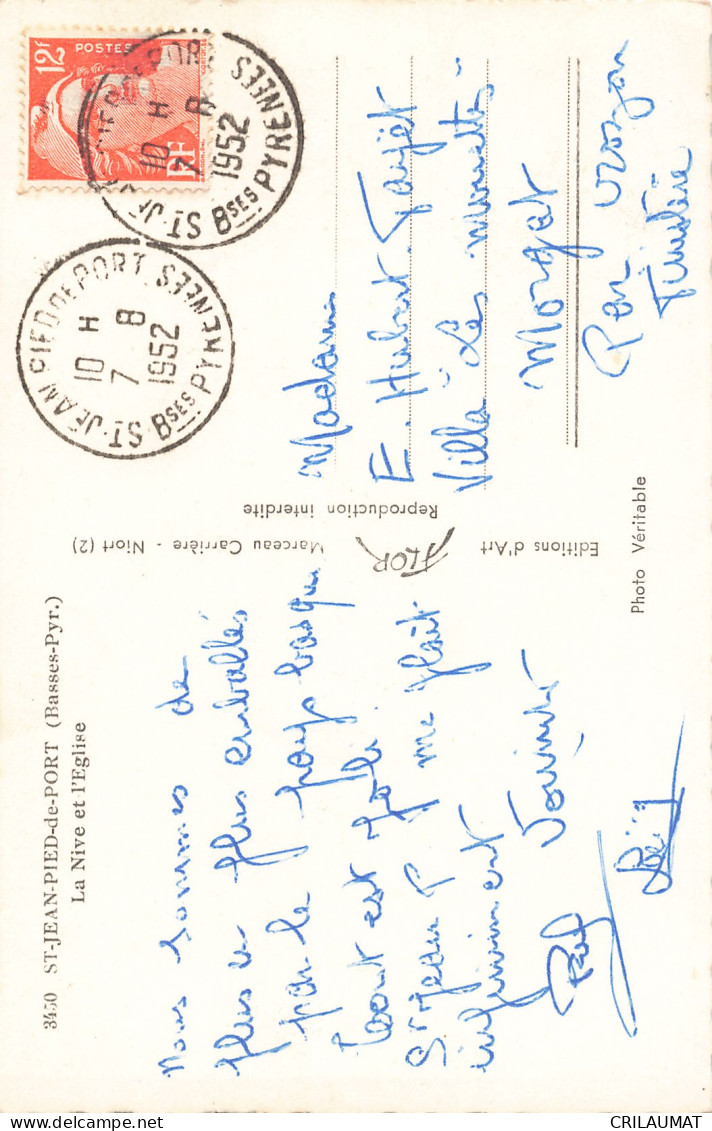 3450 ST-JEAN-PIED-de-PORT (Basses-Pyr.)
La Nive et l'Eglise
Nous sommes de
plus en plus emballés
par le pays basque
tout est joli.
St Jean P me plaît
infiniment
Souvenirs
Editions d'Art
FLOR
Marceau Carrière - Niort (2)
Reproduction interdite
Photo Véritable
12F
POSTES
RF
ST-JEAN PIED DE PORT
10 H
7 8
1952
Bses PYRENEES
ST-JEAN PIED DE PORT
10 H
7 8
1952
Bses PYRENEES
Madame
E. Hubert-
Villa "Les Mouettes"
Morgat
Par Crozon
Finistère
CRILAUMAT